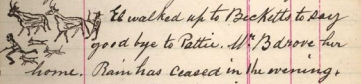 E walked up to Becketts to say
good bye to Pattie. Mr B drove her
home. Rain has ceased in the evening.